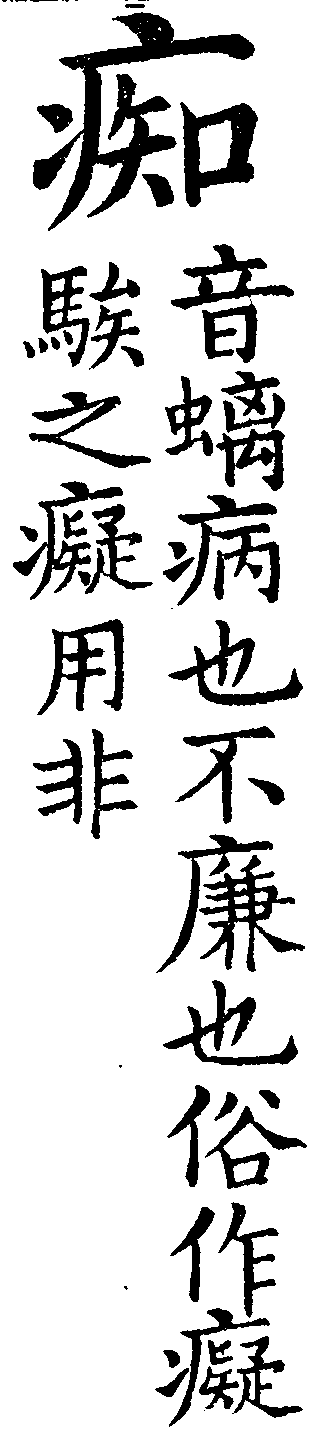 痴
音螭病也不廉也俗作癡
騃之癡用非